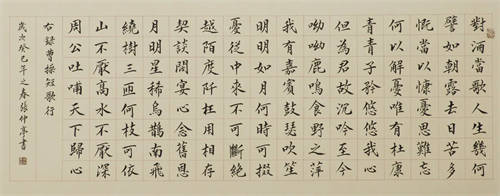 對酒當歌人生幾何
譬如朝露去日苦多
慨當以慷憂思難忘
何以解憂唯有杜康
青青子衿悠悠我心
但為君故沉吟至今
呦呦鹿鳴食野之萍
我有嘉賓鼓瑟吹笙
明明如月何時可掇
憂從中來不可斷絕
越陌度阡枉用相存
契談闊宴心念舊恩
月明星稀烏鵲南飛
繞樹三匝何枝可依
山不厭高水不厭深
周公吐哺天下歸心
右錄曹操短歌行
歲次癸巳年之春張仲亭書